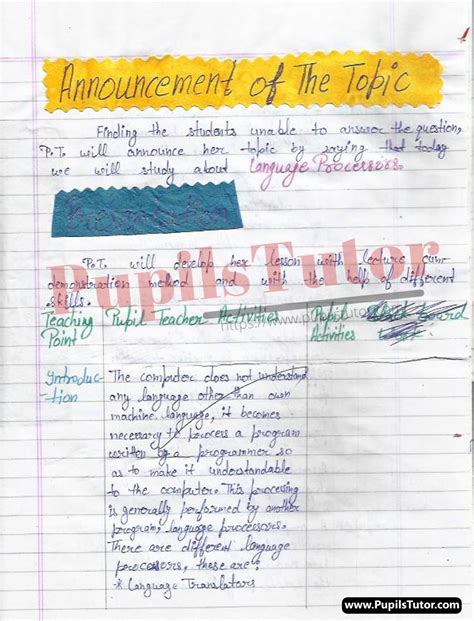 Announcement of The Topic
Finding the students unable to answer the question,
P.T. will announce her topic by saying that today
we will study about Language Processors.
Presentation
P.T. will develop her lesson with lecture cum
demonstration method and with the help of different
skills.
PupilsTutor
https://www.pupilstutor
Teaching Point Pupil Teacher Activities Pupil Activities Board
Introduc-
tion
The computer does not understand
any language other than own
machine language, it becomes
necessary to process a program
written by a programmer so
as to make it understandable
to the computer. This processing
is generally performed by another
program, language processors.
There are different language
processors, these are:
* Language Translators
www.PupilsTutor.com